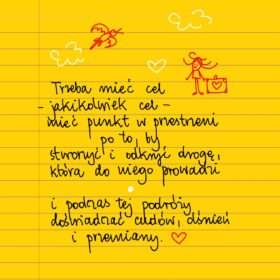 Trzeba mieć cel
- jakikolwiek cel -
mieć punkt w przestrzeni
po to, by
stworzyć i odkryć drogę,
która do niego prowadzi
i podczas tej podróży
doświadczać cudów, olśnień
i przemiany.